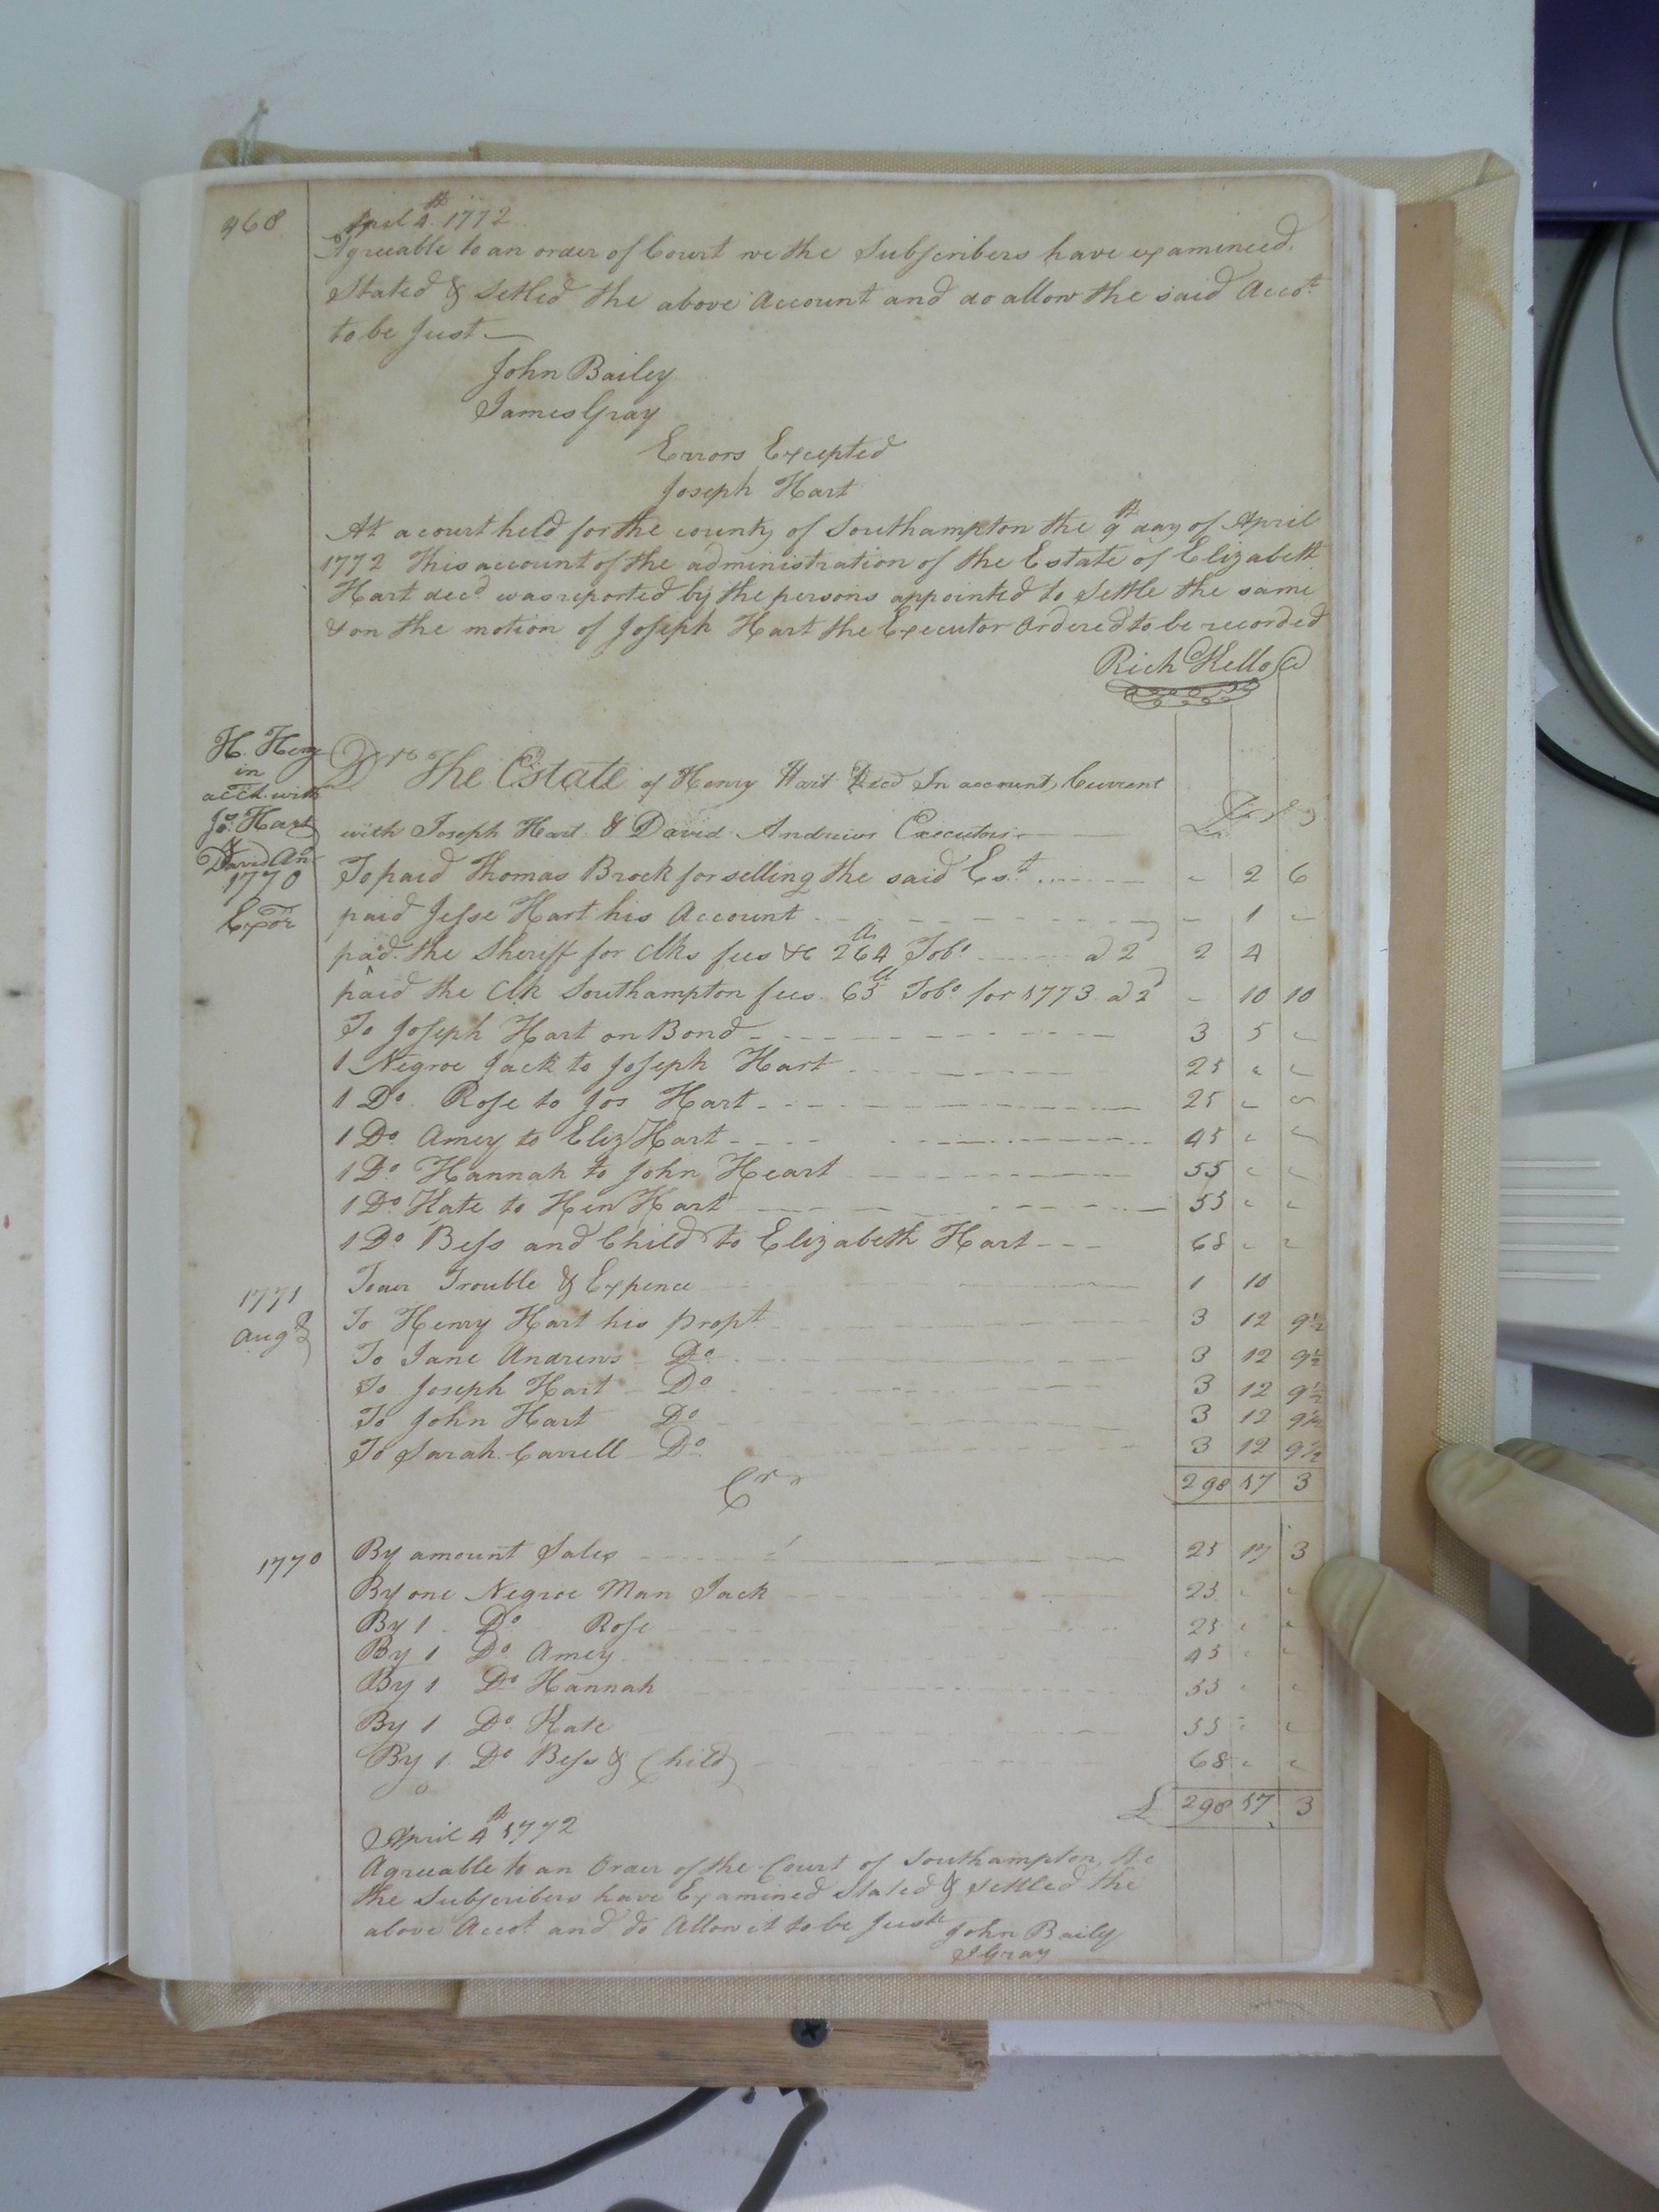 468
April 4th 1772
Agreeable to an order of Court we the Subscribers have examineed
Stated & Setled the above Account and do allow the said Accot
to be Just —
John Bailey
James Gray
Errors Excepted
Joseph Hart
At a court held for the county of Southampton the 9th day of April
1772 This account of the administration of the Estate of Elizabeth
Hart decd was reported by the persons appointed to Settle the same
& on the motion of Joseph Hart the Executor Ordered to be recorded
Rich Kello
H. Heny
in
acct. with
Jos. Hart
&
David An
1770
Exor
Drs The Estate of Henry Hart Decd In account Current
with Joseph Hart & David Andrews Executors
To paid Thomas Brock for selling the said Est. " 2 6
paid Jesse Hart his Account " 1 "
paid the Sheriff for Clks fees &c 264 lb Tobo a 2d 2 4
paid the Clk Southampton fees 65 lb Tobo for 1773 a 2d " 10 10
To Joseph Hart on Bond 3 5 "
1 Negroe Jack to Joseph Hart 25 " "
1 Do. Rose to Jos Hart 25 " "
1 Do. Amey to Eliz Hart 45 " "
1 Do. Hannah to John Heart 55 " "
1 Do. Kate to Hen Hart 55 " "
1 Do. Bess and Child to Elizabeth Hart 68 " "
1771
Augt
To our Trouble & Expence 1 10
To Henry Hart his propt 3 12 9½
To Jane Andrews Do. 3 12 9½
To Joseph Hart Do 3 12 9½
To John Hart Do 3 12 9½
To Sarah Carrell Do. 3 12 9½
Crr 298 17 3
1770 By amount Sales 25 17 3
By one Negroe Man Jack 25 " "
By 1 Do Rose 25 " "
By 1 Do Amey 45 " "
By 1 Do Hannah 55 " "
By 1 Do. Kate 55 " "
By 1. Do Bess & Child 68 " "
£ 298 17 3
April 4th 1772
Agreeable to an Order of the Court of Southampton
the Subscribers have Examined Stated & Settled the
above Accot. and do Allow it to be Just John Baily
J Gray